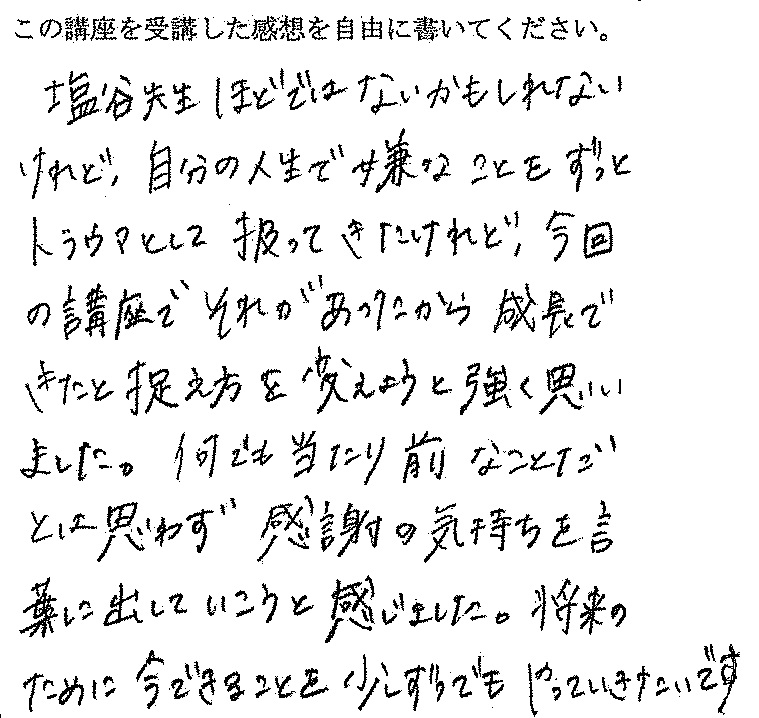 この講座を受講した感想を自由に書いてください。
塩谷先生ほどではないかもしれない
けれど、自分の人生で嫌なことをずっと
トラウマとして扱ってきたけれど、今回
の講座でそれがあったから成長で
きたと捉え方を変えようと強く思い
ました。何でも当たり前なことだ
とは思わず感謝の気持ちを言
葉に出していこうと感じました。将来の
ために今できることを少しずつでもやっていきたいです